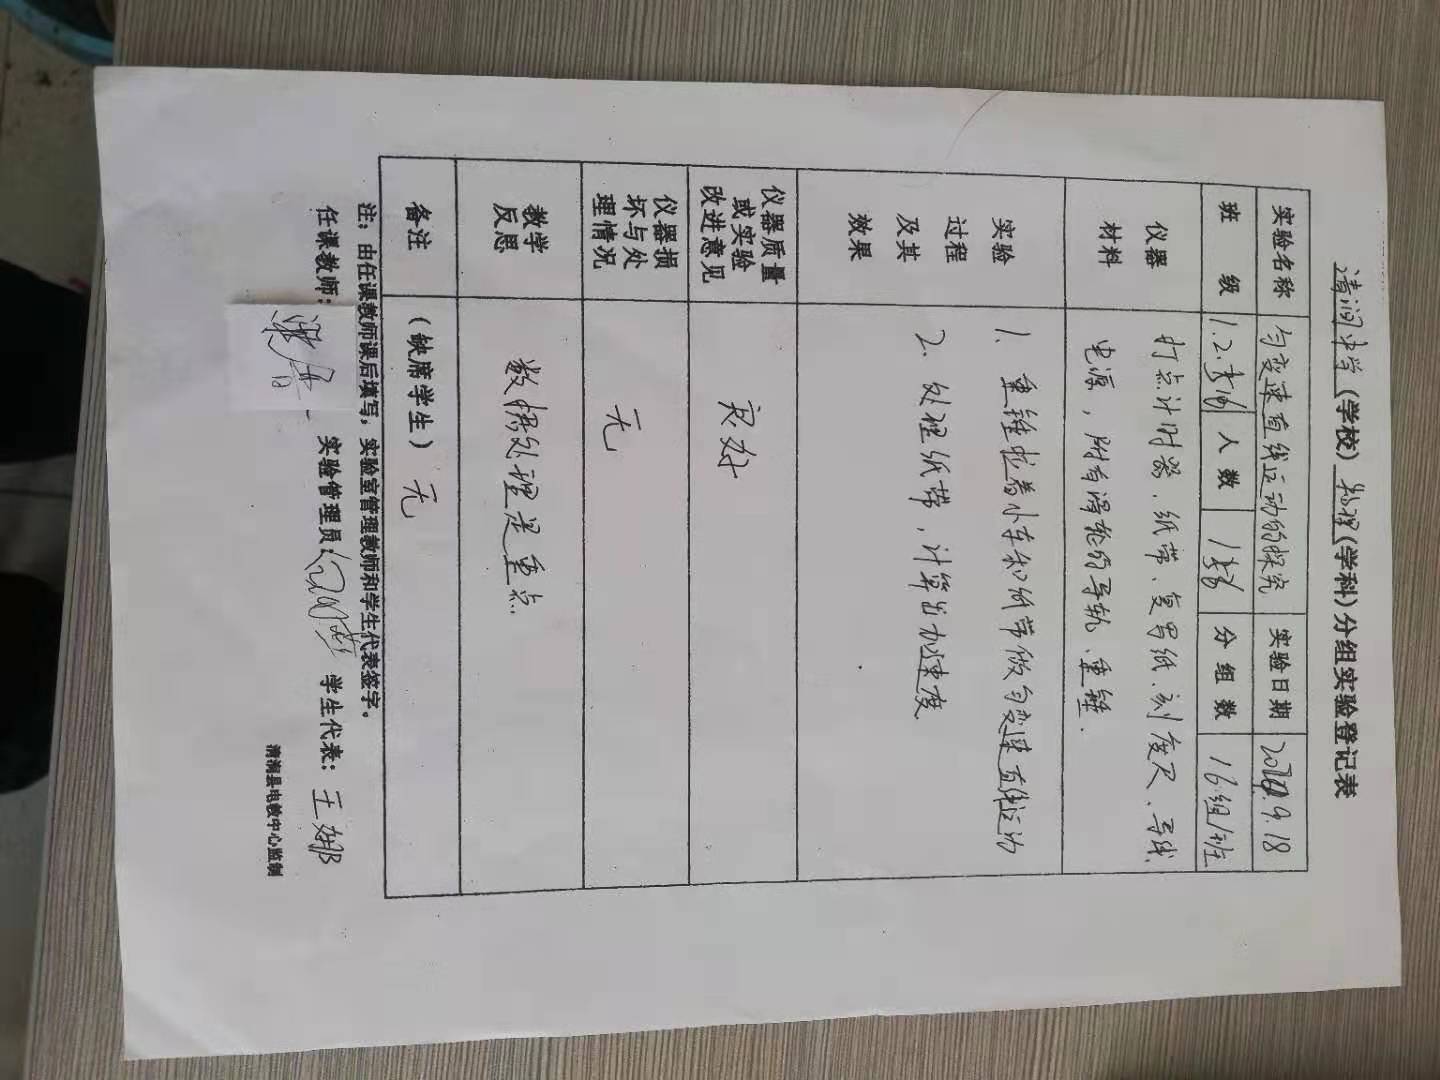 清涧中学(学校)物理(学科)分组实验登记表
实验名称 匀变速直线运动的探究 实验日期 9.18
班级 1.2. 人数 分组数 16组/班
仪器材料 打点计时器、纸带、复写纸、刻度尺、导线
电源,附有滑轮的导轨、重锤.
实验过程及其效果 1. 重锤拉着小车和纸带做匀变速直线运动
2. 处理纸带,计算出加速度
仪器质量或实验改进意见 良好
仪器损坏与处理情况 无
教学反思 数据处理是重点
备注 (缺席学生) 无
注:由任课教师课后填写,实验室管理教师和学生代表签字。
任课教师: 实验管理员: 学生代表:王娜
清涧县电教中心监制